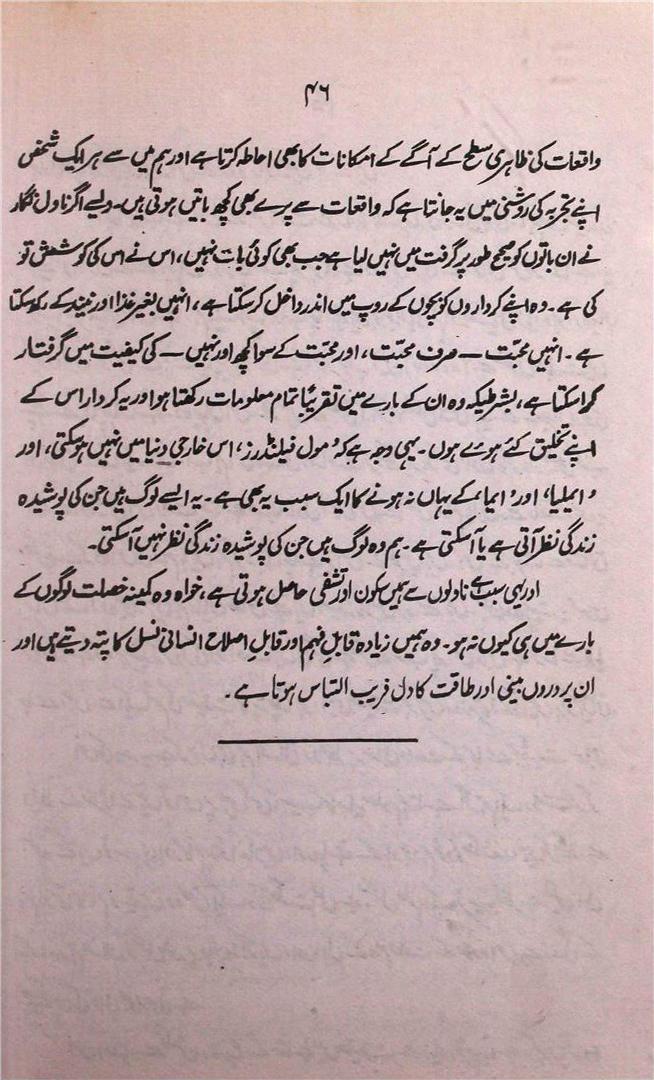 ۴۶
واقعات کی ظاہری سطح کے آگے کے امکانات کا بھی احاطہ کرتا ہے اور ہم میں سے ہر ایک شخص
اپنے تجربہ کی روشنی میں یہ جانتا ہے کہ واقعات سے پرے بھی کچھ باتیں ہوتی ہیں۔ ویسے اگر ناول نگار
نے ان باتوں کو صحیح طور پر گرفت میں نہیں لیا ہے جب بھی کوئی بات نہیں، اس نے اس کی کوشش تو
کی ہے۔ وہ اپنے کرداروں کو بچوں کے روپ میں اندر داخل کر سکتا ہے، انہیں بغیر غذا اور نیند کے رکھ سکتا
ہے۔ انہیں محبت — صرف محبّت، اور محبّت کے سوا کچھ اور نہیں — کی کیفیت میں گرفتار
کرا سکتا ہے، بشرطیکہ وہ ان کے بارے میں تقریباً تمام معلومات رکھتا ہو اور یہ کردار اس کے
اپنے تخلیق کئے ہوئے ہوں۔ یہی وجہ ہے کہ ’مول فیلنڈرز‘ اس خارجی دنیا میں نہیں ہو سکتی، اور
’ایملیا‘ اور ’ایما‘ کے یہاں نہ ہونے کا ایک سبب یہ بھی ہے۔ یہ ایسے لوگ ہیں جن کی پوشیدہ
زندگی نظر آتی ہے یا آ سکتی ہے۔ ہم وہ لوگ ہیں جن کی پوشیدہ زندگی نظر نہیں آ سکتی۔
اور یہی سبب ہے ناولوں سے ہمیں سکون اور تشفی حاصل ہوتی ہے، خواہ وہ کمینہ خصلت لوگوں کے
بارے میں ہی کیوں نہ ہو۔ وہ ہمیں زیادہ قابلِ فہم اور قابلِ اصلاح انسانی نسل کا پتہ دیتے ہیں اور
ان پر دروں بینی اور طاقت کا دل فریب التباس ہوتا ہے۔